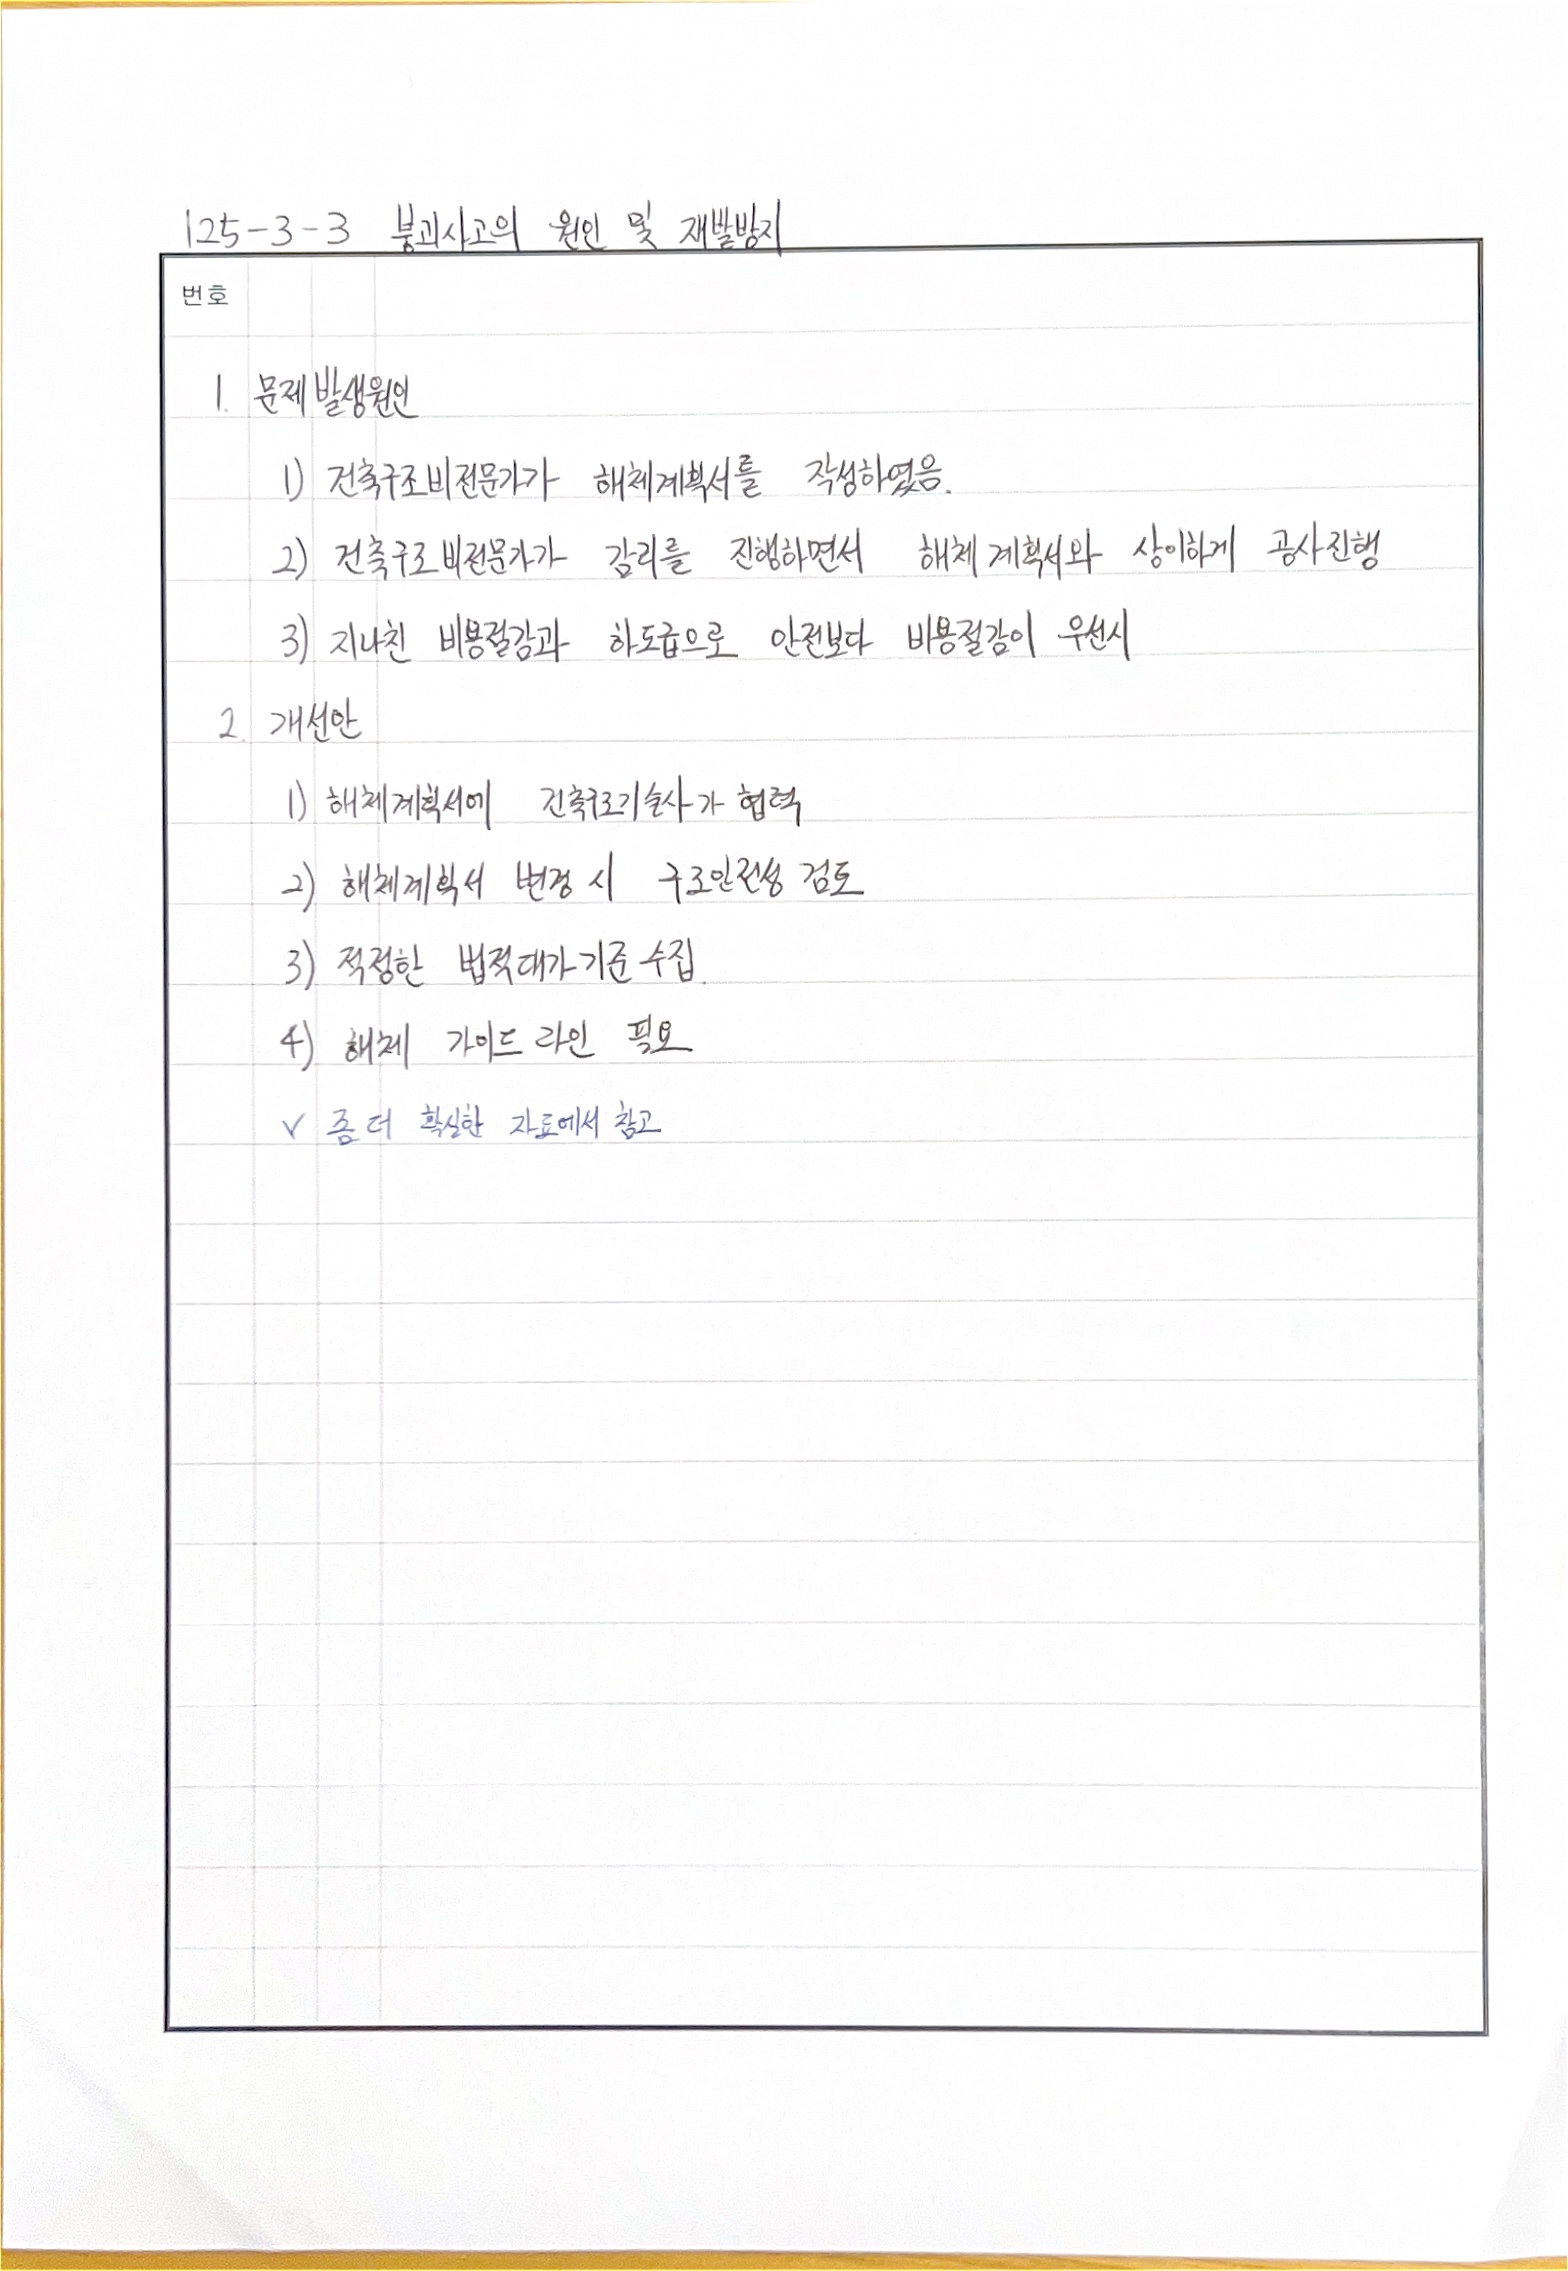 125-3-3 붕괴사고의 원인 및 재발방지
번호
1. 문제발생원인
1) 건축구조비전문가가 해체계획서를 작성하였음.
2) 건축구조비전문가가 감리를 진행하면서 해체계획서와 상이하게 공사진행
3) 지나친 비용절감과 하도급으로 안전보다 비용절감이 우선시
2. 개선안
1) 해체계획서에 건축구조기술사가 협력
2) 해체계획서 변경 시 구조안전성 검토
3) 적정한 법적대가기준 수집.
4) 해체 가이드라인 필요
√ 좀 더 확실한 자료에서 참고